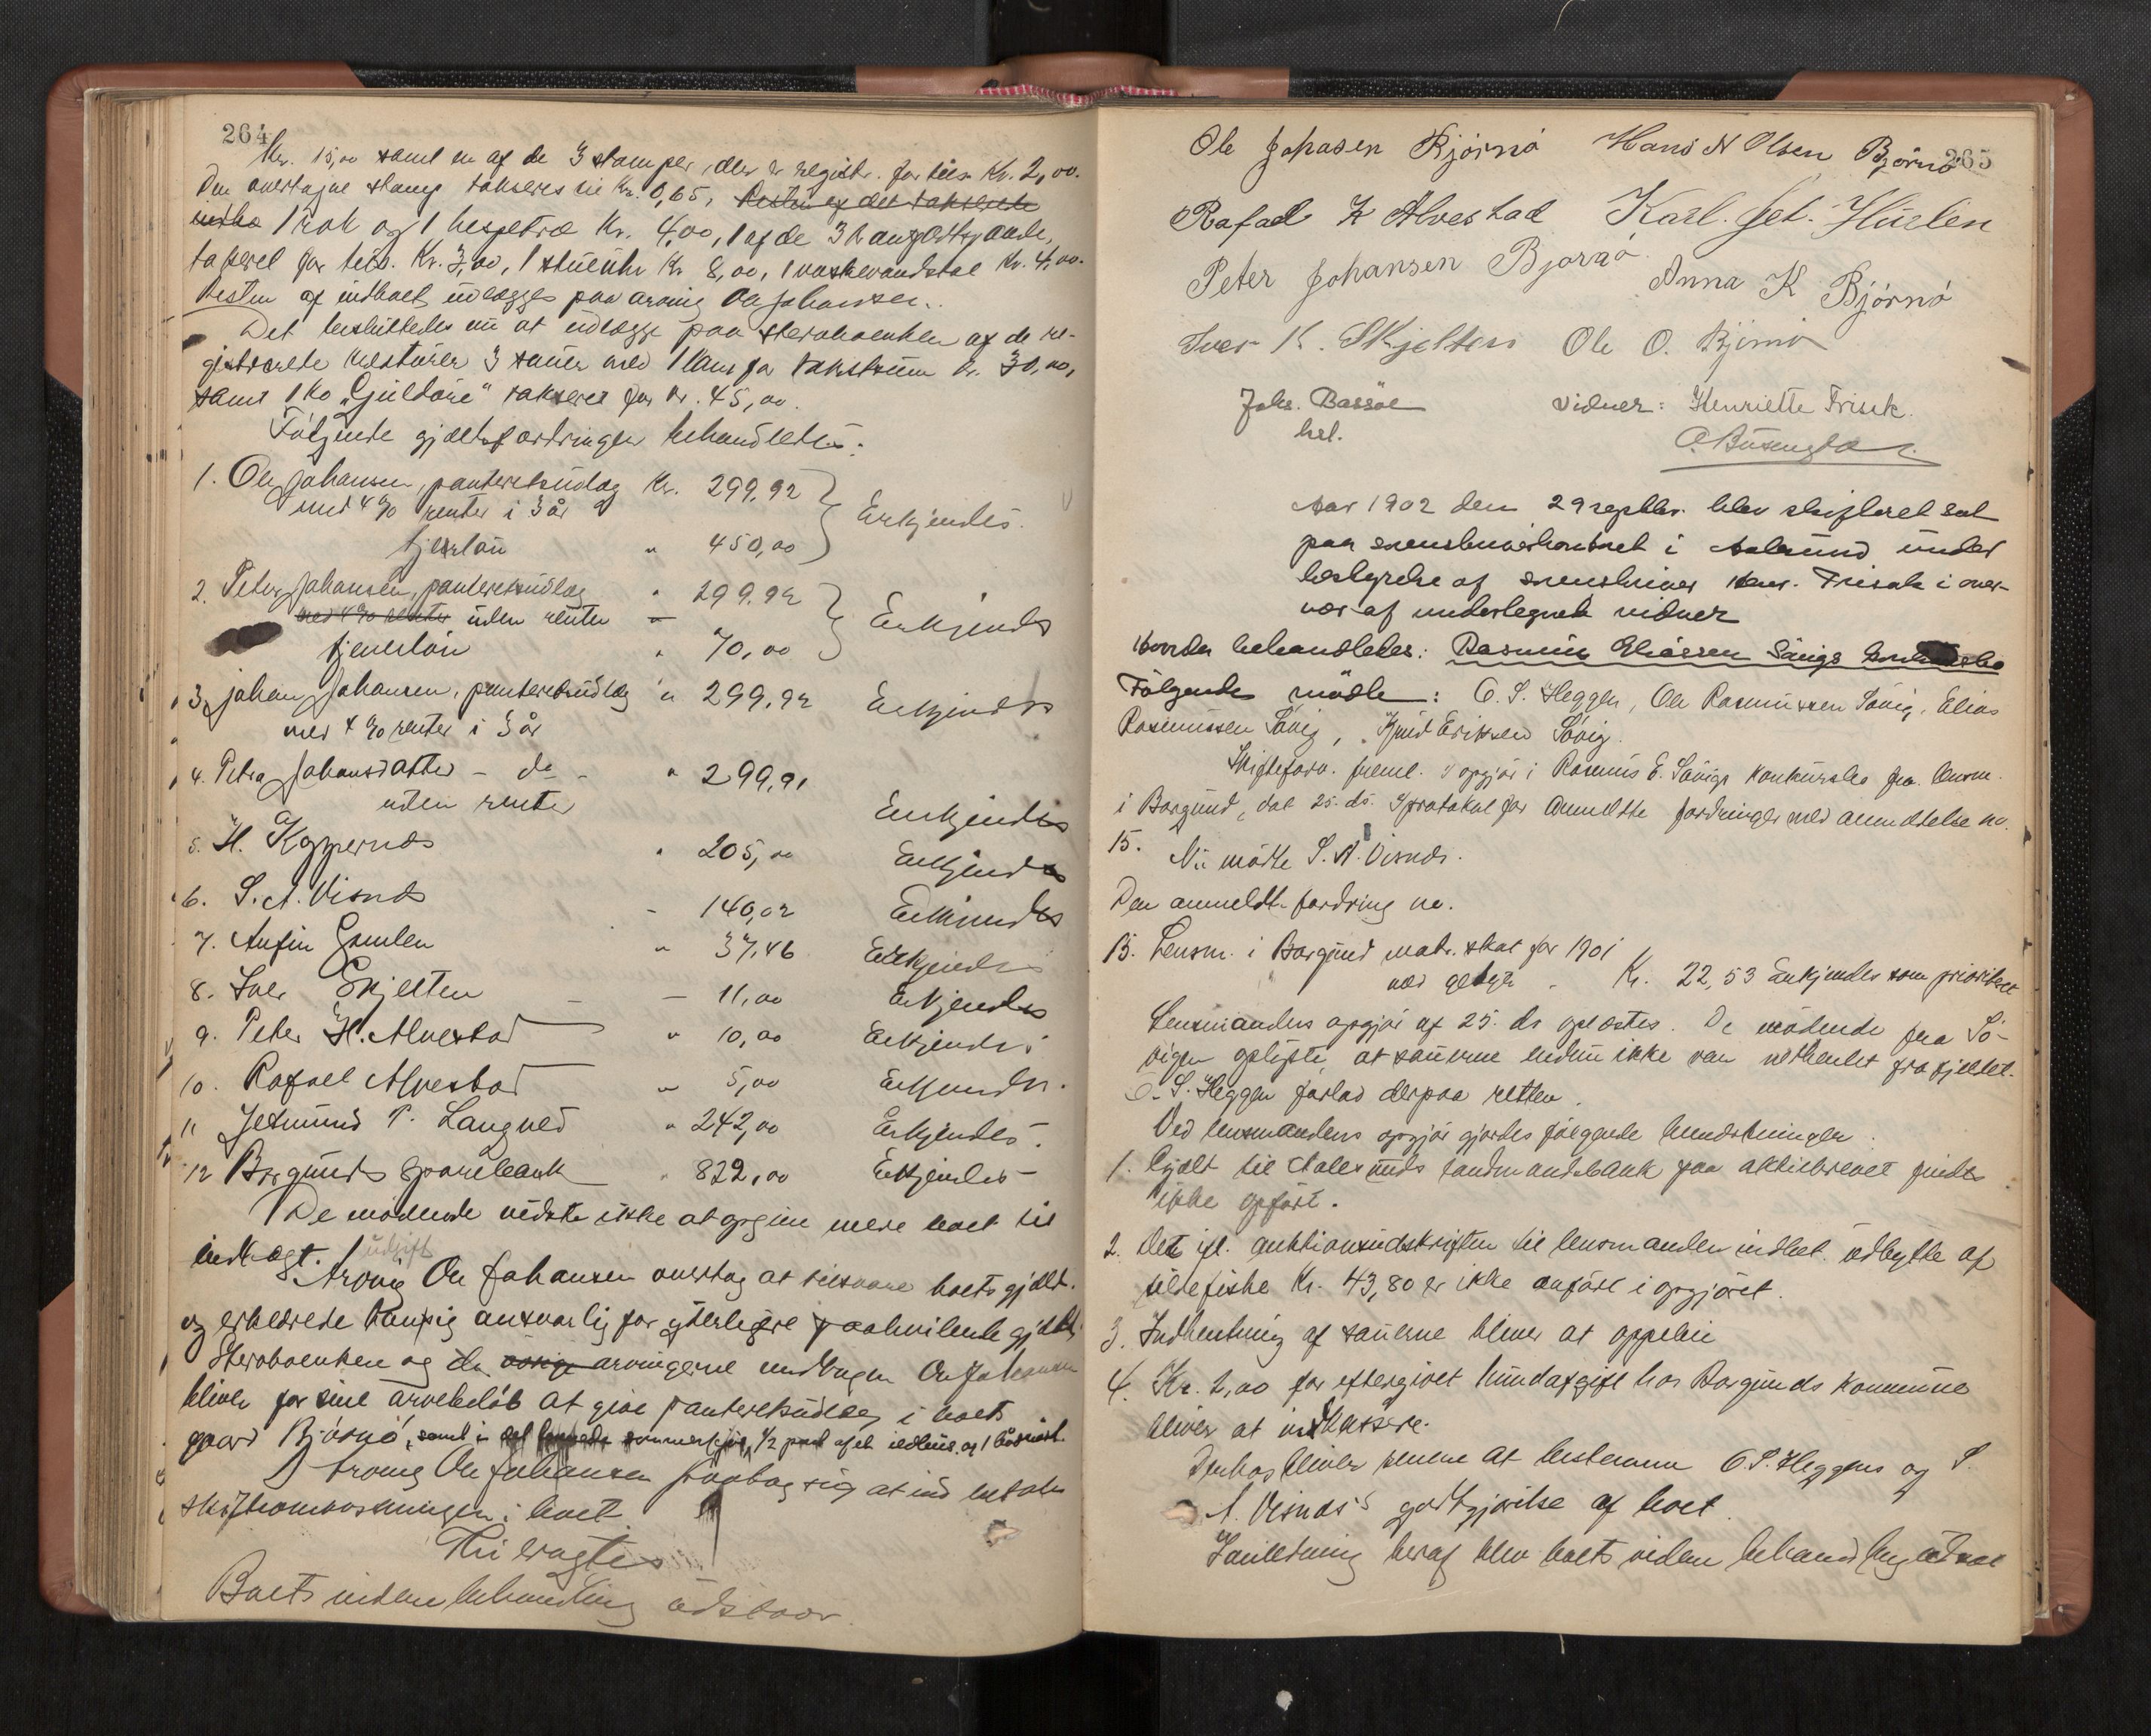 264
Kr. 15,00 samt en af de 3 stamper, der er registr. for tils. Kr. 2,00.
Den overtagne stamp takseres til Kr. 0,65, Resten af det takserede
indbo 1 rok og 1 hespetræ Kr. 4,00, 1 af de 3
takseret for tils. Kr. 3,00, 1 stueuhr Kr 8,00, 1 vaskevandstøl Kr. 4,00.
Resten af indboet udlægges paa arving Ole Johansen.
Det besluttedes nu at udlægge paa sterboenken af de re-
gistrerede kreaturer 3 sauer med 1 lam for takstsum kr. 30,00,
samt 1 ko "Guldare" takseret for kr. 45,00.
Følgende gjældsfordringer behandledes:
1. Ole Johansen, panteretsudlæg Kr. 299,92
med 4% renter i 3 år
Erkjendes.
tjenerløn " 450,00
2. Peter Johansen, panteretsudlæg " 299,92
med 4% renter uden renter
Erkjendes
tjenerløn " 70,00
3. Johan Johansen, panteretsudlæg " 299,92 Erkjendes
med 4% renter i 3 år
4. Petra Johansdatter - do - " 299,91
uden renter Erkjendes
5. H. Koppernæs " 205,00 Erkjendes
6. S. A. Visnæs - 140,02 Erkjendes
7. Anfin Gamlen " 37,46 Erkjendes
8. Iver Skjelten - 11,00 Erkjendes
9. Peter H. Alvestad " 10,00 Erkjendes
10. Rafael Alvestad " 5,00 Erkjendes.
11 Jetmund P. Langved " 242,00 Erkjendes.
12 Borgunds sparebank " 822,00 Erkjendes
De mødende vidste ikke at opgive mere boet til
indtægt. udgift
Arving Ole Johansen overtog at tilsvare boets gjæld.
og erklærede sig ansvarlig for yderligere paahvilende gjæld.
Sterboenken og de øvrige arvingerne undtagen Ole Johansen
bliver for sine arvebeløb at give panteretsudlæg i boets
gaard Bjørnø, samt i det sommerfjøs, 1/2 part af et ildhus og 1 bådnøst.
Arving Ole Johansen paatog sig at ind betale
skifteomkostningen i boet
Thi eragtes
Boets videre behandling udstaar
265
Ole Johasen Bjørnø Hans N Olsen Bjørnø
Rafael K Alvestad Karl. Jet. Hurlen
Peter Johansen Bjørnø. Anna K Bjørnø
Iver K. Skjelten Ole O. Bjørnø
Johs. Bassøe Vidner: Henriette Frisak.
bel.
Aar 1902 den 29 septbr. blev skifteret sat
paa sorenskriverkontoret i Aalesund under
bestyrelse af sorenskriver Henr. Frisak i over-
vær af undertegnede vidner
Hvorda behandledes: Rasmus Eliassen Søvigs konkursbo
Følgende mødte: O. S. Heggen, Ole Rasmussen Søvig, Elias
Rasmussen Søvig, Knud Eriksen Søvig.
Skifteforv. freml. 1 opgjør i Rasmus E. Søvigs konkursbo fra lensm.
i Borgund, dat 25. ds. 2 protokol for anmeldte fordringer med anmeldelse no.
15. Nu mødte S. A. Visnæs.
Den anmeldt fordring no.
15. Lensm. i Borgund matr. skat for 1901
med gebyr - Kr. 22,53 Erkjendes som prioriteret
Lensmandens opgjør af 25. ds oplæstes. De mødende fra Sø-
vigen oplyste, at sauerne endnu ikke var nedhentet fra fjeldet.
O. S. Heggen forlod derpaa retten.
Ved lensmandens opgjør gjordes følgende bemærkninger.
1. Gjæld til Aalesunds landmandsbank paa aktiebrevet findes
ikke opført.
2. Det ifl. auktionsudskriften til lensmanden indbet. udbytte af
sildefiske Kr. 43,80 er ikke anført i opgjøret.
3. Indhentning af sauerne bliver at oppebie
4. Kr. 2,00 for eftergivet hundafgift hos Borgunds kommune
bliver at indkassere.
Derhos bliver senere at bestemme O. S. Heggens og S.
A. Visnæs's godtgjørelse af boet.
I anledning heraf blev boets videre behandling udsat